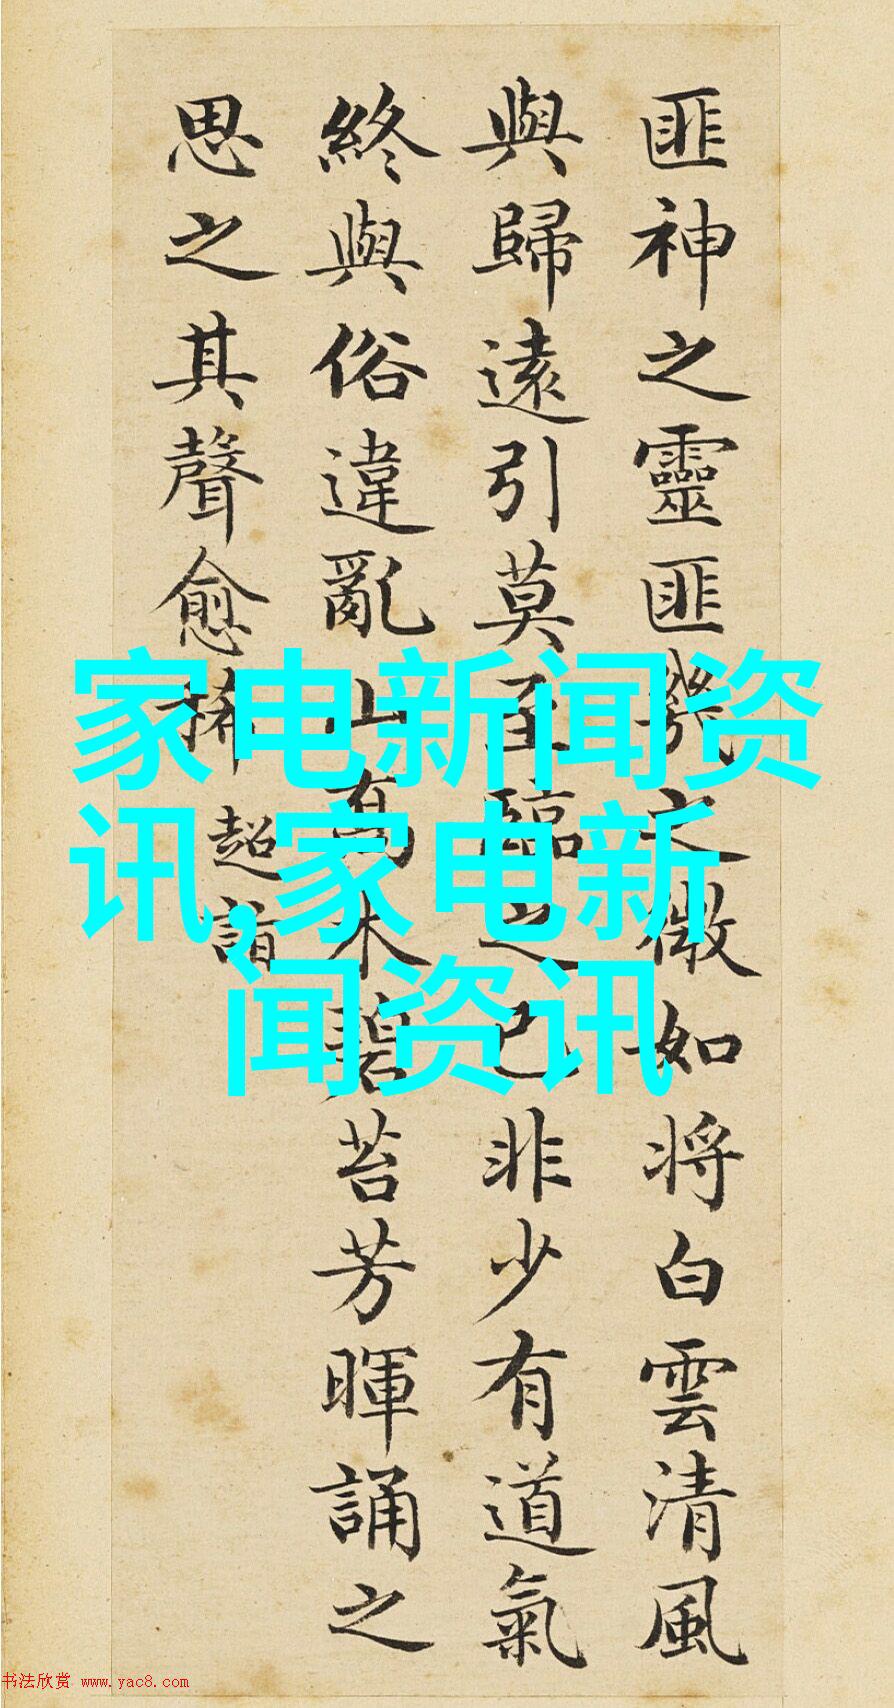 匪神之靈匪幾之微如将白雲清風
與歸遠引莫至臨之已非少有道氣
終與俗違亂山高木碧苔芳暉誦之
思之其聲愈稀
超詣
家电新闻资
讯,家电新
闻资讯
书法欣赏 www.yac8.com